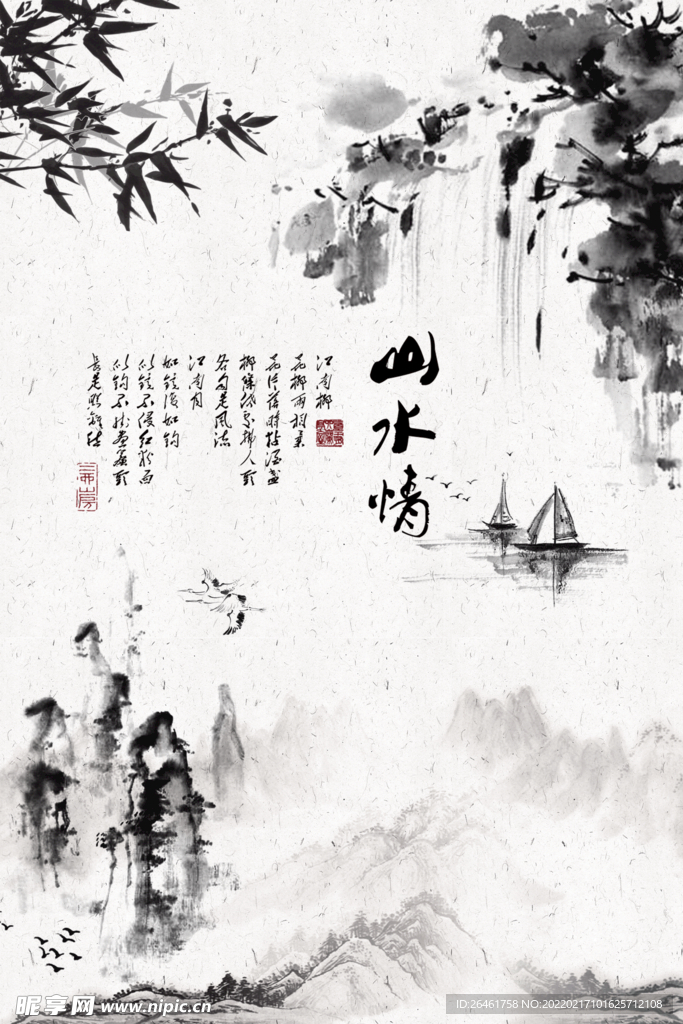 山水情
江南柳
花柳两相柔
花片落时黏酒盏
柳条低处拂人头
各自是风流
江南月
如镜复如钩
似镜不侵红粉面
似钩不挂画帘头
长是照离愁
昵享网 www.nipic.cn
ID:26461758 NO:20220217101625712108